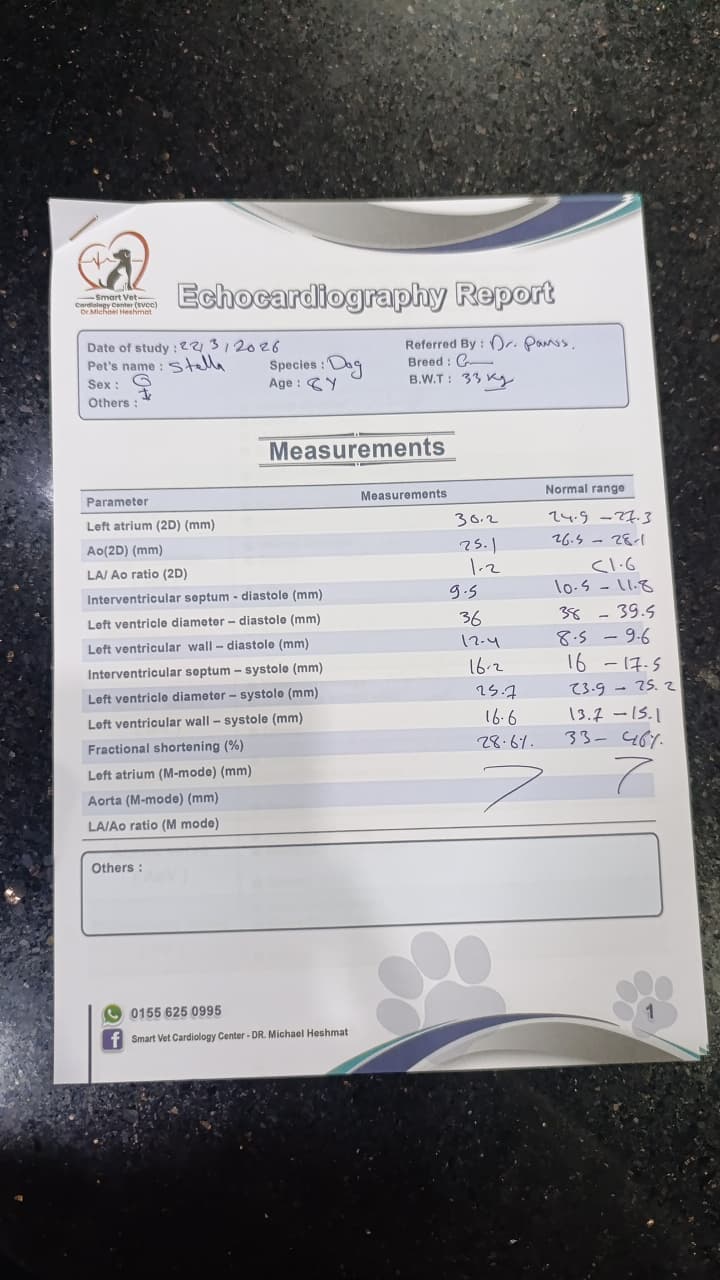 Smart Vet
Cardiology Center (SVCC)
Dr.Michael Heshmat
Echocardiography Report
Date of study : 22/3/2026
Referred By : Dr.
Pet's name : Stella
Species : Dog
Breed : G
Sex : ♀
Age : 8Y
B.W.T : 33 Kg
Others :
Measurements
Parameter Measurements Normal range
Left atrium (2D) (mm) 30.2 24.9 - 27.3
Ao(2D) (mm) 25.1 26.5 - 28.1
LA/ Ao ratio (2D) 1.2 <1.6
Interventricular septum - diastole (mm) 9.5 10.5 - 11.8
Left ventricle diameter – diastole (mm) 36 38 - 39.5
Left ventricular wall – diastole (mm) 12.4 8.5 - 9.6
Interventricular septum – systole (mm) 16.2 16 - 17.5
Left ventricle diameter – systole (mm) 25.7 23.9 - 25.2
Left ventricular wall – systole (mm) 16.6 13.7 - 15.1
Fractional shortening (%) 28.6% 33 - 46%
Left atrium (M-mode) (mm)
Aorta (M-mode) (mm)
LA/Ao ratio (M mode)
Others :
0155 625 0995
Smart Vet Cardiology Center - DR. Michael Heshmat
1